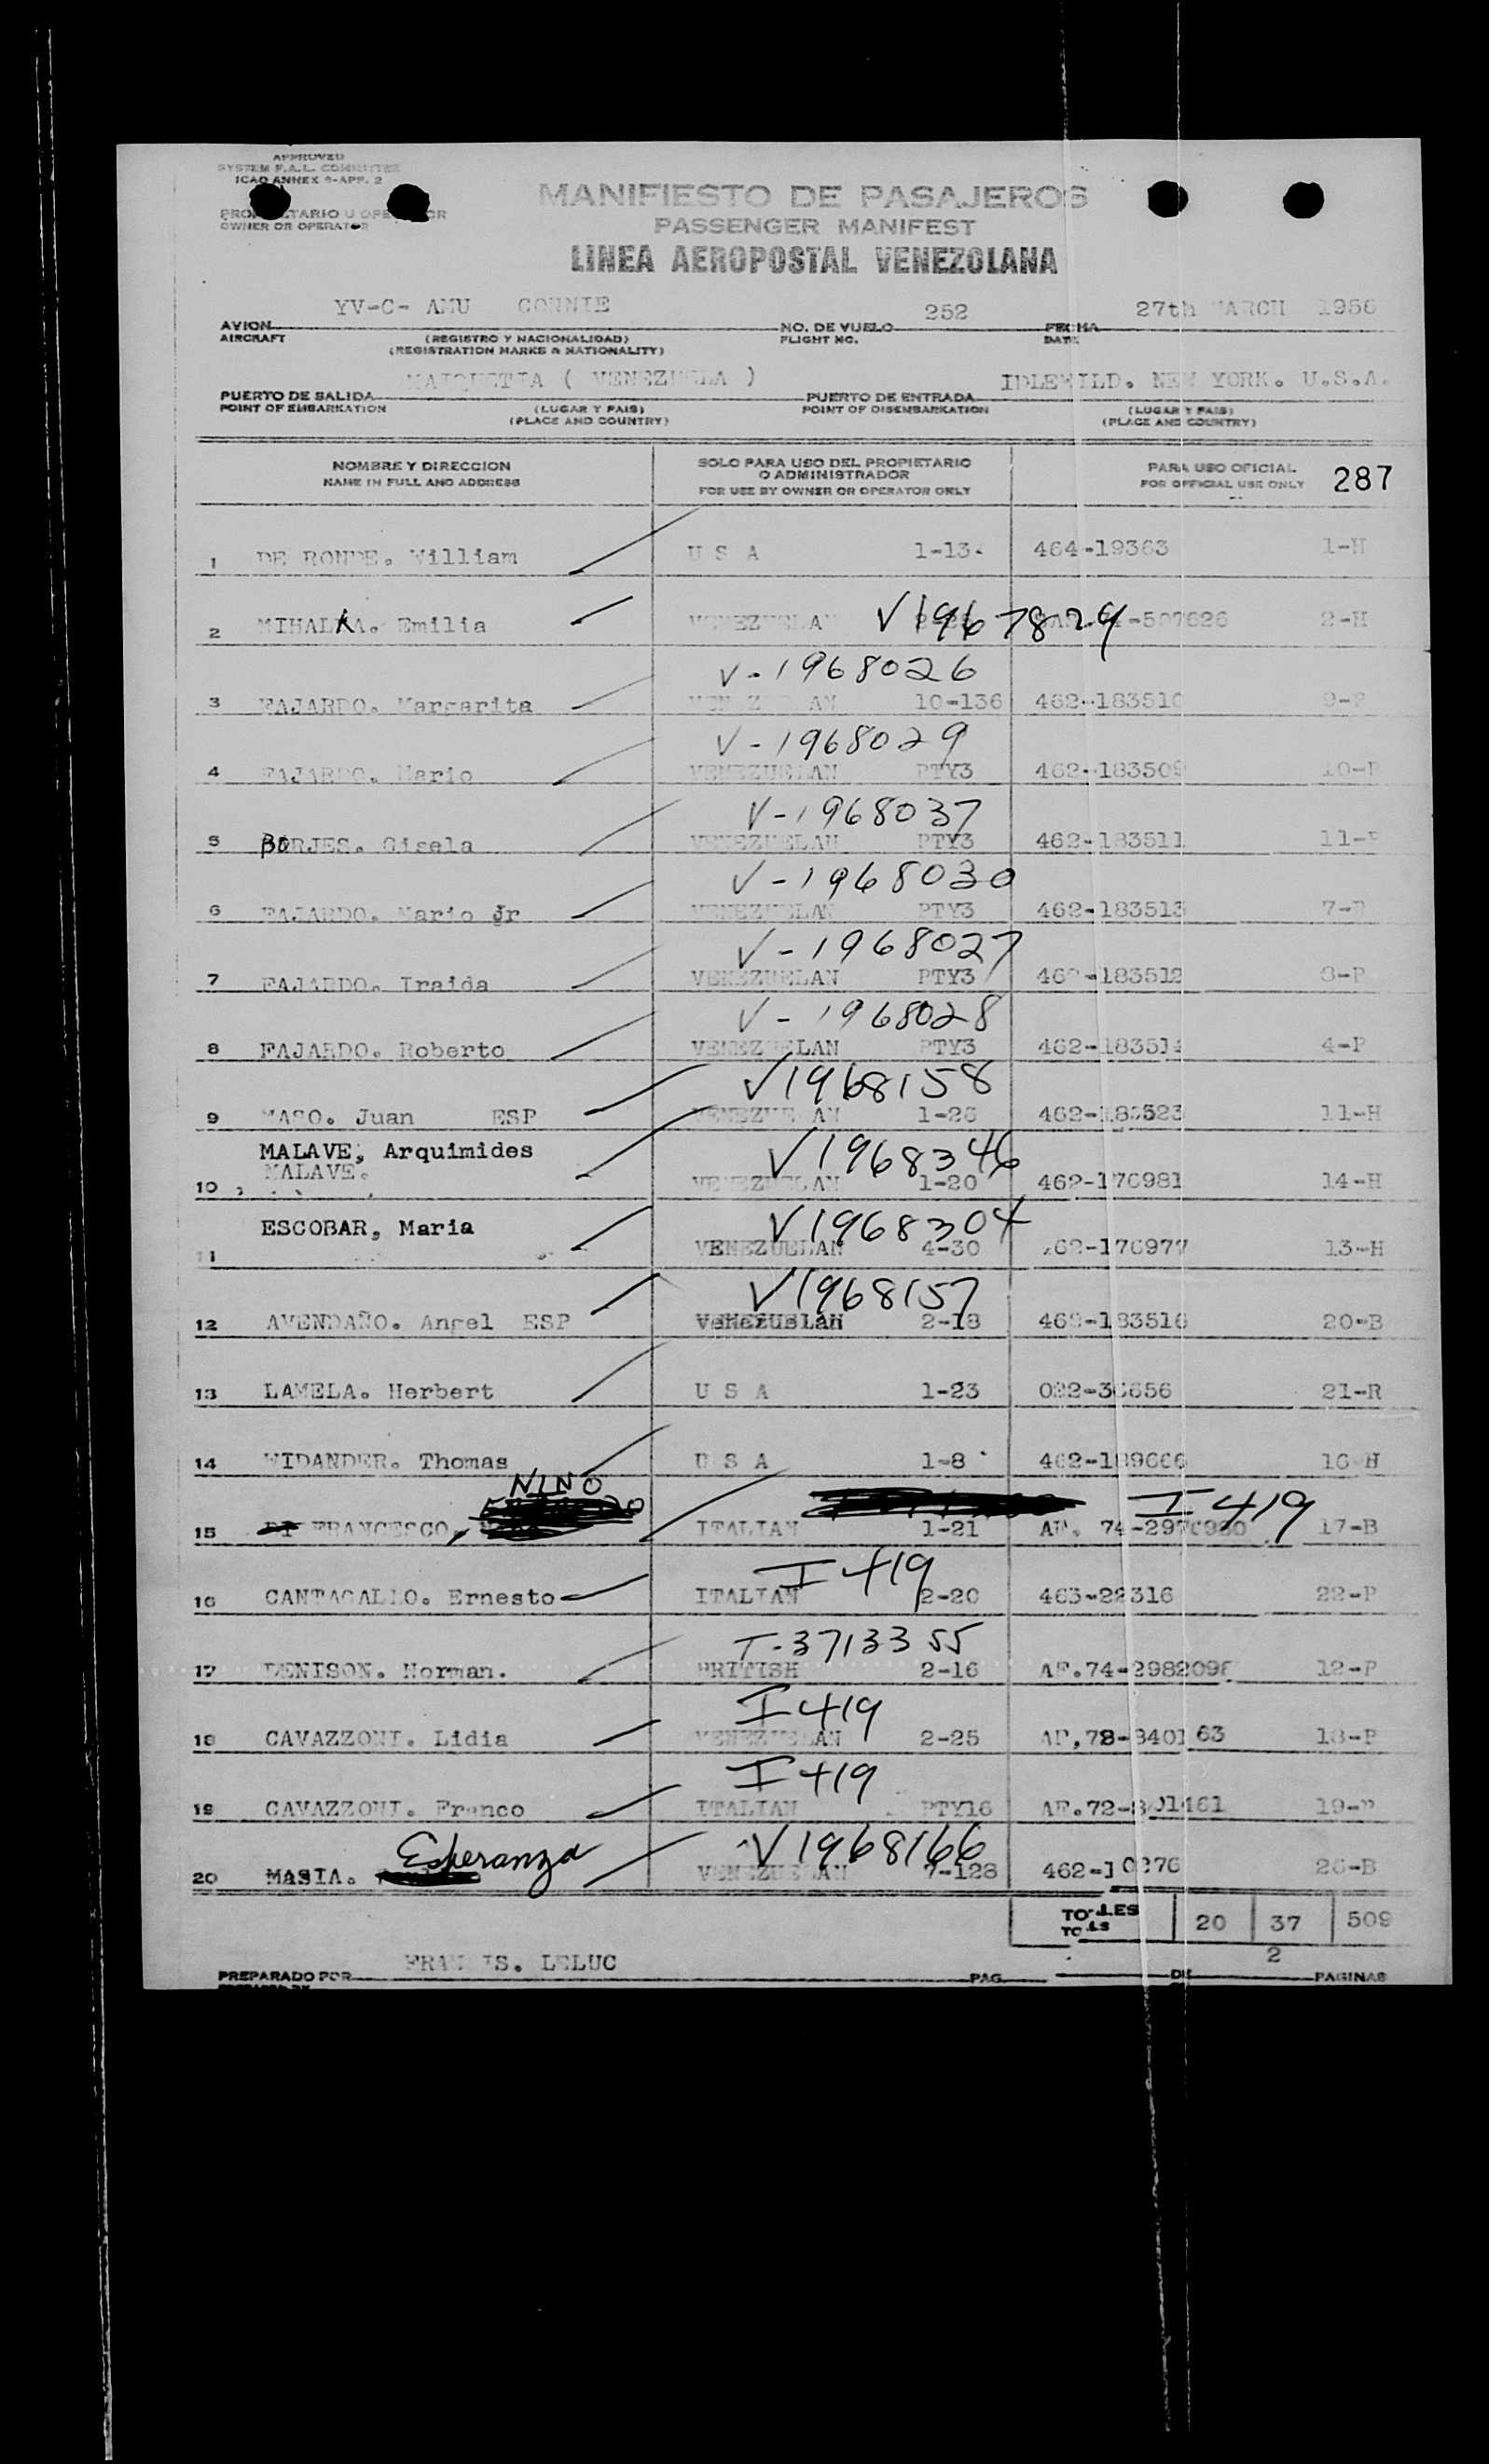 APPROVED
SYSTEM F.A.L. COMMITTEE
ICAO ANNEX 9-APP. 2
MANIFIESTO DE PASAJEROS
PROPIETARIO U OPERADOR
OWNER OR OPERATOR
PASSENGER MANIFEST
LINEA AEROPOSTAL VENEZOLANA
YV-C- AMU CONNIE 252 27th MARCH 1956
AVION NO. DE VUELO FECHA
AIRCRAFT (REGISTRO Y NACIONALIDAD) FLIGHT NO. DATE
(REGISTRATION MARKS & NATIONALITY)
MAIQUETIA ( VENEZUELA ) IDLEWILD. NEW YORK. U.S.A.
PUERTO DE SALIDA PUERTO DE ENTRADA
POINT OF EMBARKATION (LUGAR Y PAIS) POINT OF DISEMBARKATION (LUGAR Y PAIS)
(PLACE AND COUNTRY) (PLACE AND COUNTRY)
NOMBRE Y DIRECCION SOLO PARA USO DEL PROPIETARIO PARA USO OFICIAL
O ADMINISTRADOR
NAME IN FULL AND ADDRESS FOR USE BY OWNER OR OPERATOR ONLY FOR OFFICIAL USE ONLY 287
1 DE RONDE. William U S A 1-13 464-19363 1-H
2 MIHALKA. Emilia VENEZUELAN V1967829 -507626 2-H
V-1968026
3 FAJARDO. Margarita VENEZUELAN 10-136 462-183510 9-P
V-1968029
4 FAJARDO. Mario VENEZUELAN PTY3 462-183509 10-P
V-1968037
5 BORJES. Gisela VENEZUELAN PTY3 462-183511 11-P
V-1968030
6 FAJARDO. Mario Jr VENEZUELAN PTY3 462-183513 7-P
V-1968027
7 FAJARDO. Iraida VENEZUELAN PTY3 462-183512 8-P
V-1968028
8 FAJARDO. Roberto VENEZUELAN PTY3 462-183514 4-P
V1968158
9 MASO. Juan ESP VENEZUELAN 1-26 462-183523 11-H
MALAVE, Arquimides V1968346
10 MALAVE. VENEZUELAN 1-20 462-176981 14-H
ESCOBAR, Maria V1968304
11 VENEZUELAN 4-30 462-176977 13-H
V1968157
12 AVENDAÑO. Angel ESP VENEZUELAN 2-18 462-183516 20-B
13 LAMELA. Herbert U S A 1-23 022-36656 21-R
14 WIDANDER. Thomas U S A 1-8 462-189666 16-H
NINO I 419
15 DI FRANCESCO, ITALIAN 1-21 AF. 74-2970980 17-B
I 419
16 CANTAGALLO. Ernesto ITALIAN 2-20 463-22316 22-P
T-3713355
17 DENISON. Norman. BRITISH 2-16 AF.74-2982098 12-P
I 419
18 CAVAZZONI. Lidia VENEZUELAN 2-25 AF,72-840163 18-P
I 419
19 CAVAZZONI. Franco ITALIAN PTY16 AF.72-801461 19-P
Esperanza V1968166
20 MASIA. VENEZUELAN 7-128 462-10276 26-B
TOTALES 20 37 509
TOTALS
FRANCIS. LELUC 2
PREPARADO POR PAG. DE PAGINAS